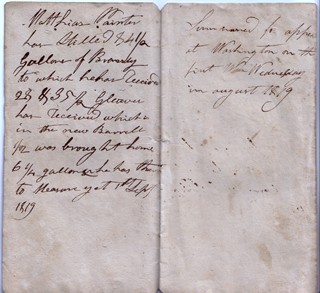 Matthias Painter
has Stilled 84 1/2
Gallons of Brandy
to which he has Received
28 & 35 1/2 Gleaner
has Received which is
in the new Barrell
1/2 was brought home
6 1/2 gallons he has the
to Measure yet 1st Sept
1819
Summoned to appear
at Washington on the
first Wednesday
in august 1819